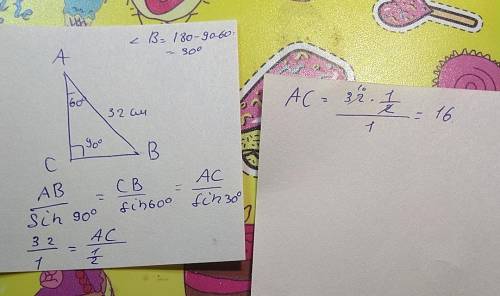 ∠ B = 180-90-60=
= 30°
A
60°
32 см
90°
C
B
AB/Sin 90° = CB/sin 60° = AC/sin 30°
32/1 = AC/(1/2)
AC = (32^16 · 1/2)/1 = 16